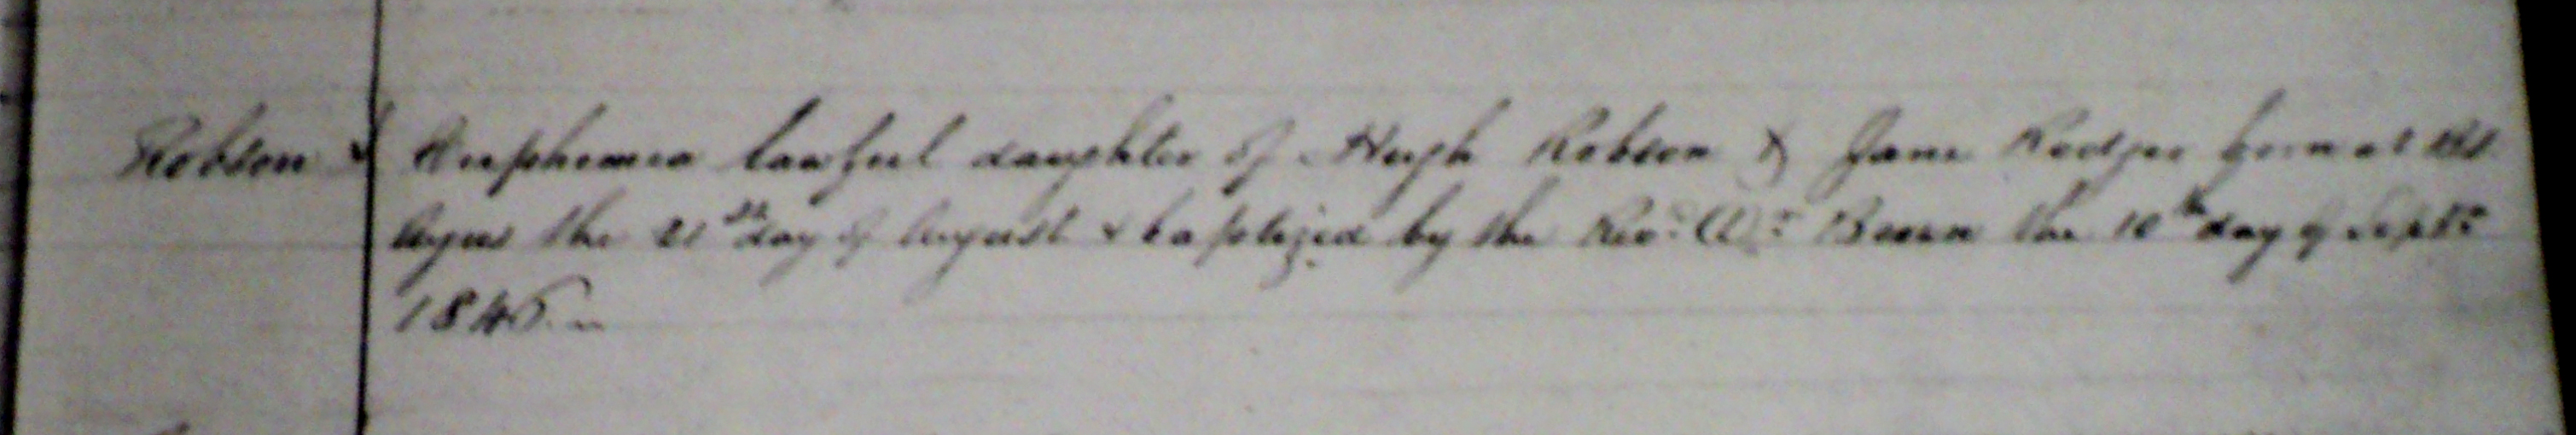 Robson & Heuphemia lawful daughter of Hugh Robson & Jane Rodger born at
the 21st day of August & baptized by the Revd. the 10th day of Septr
1846.